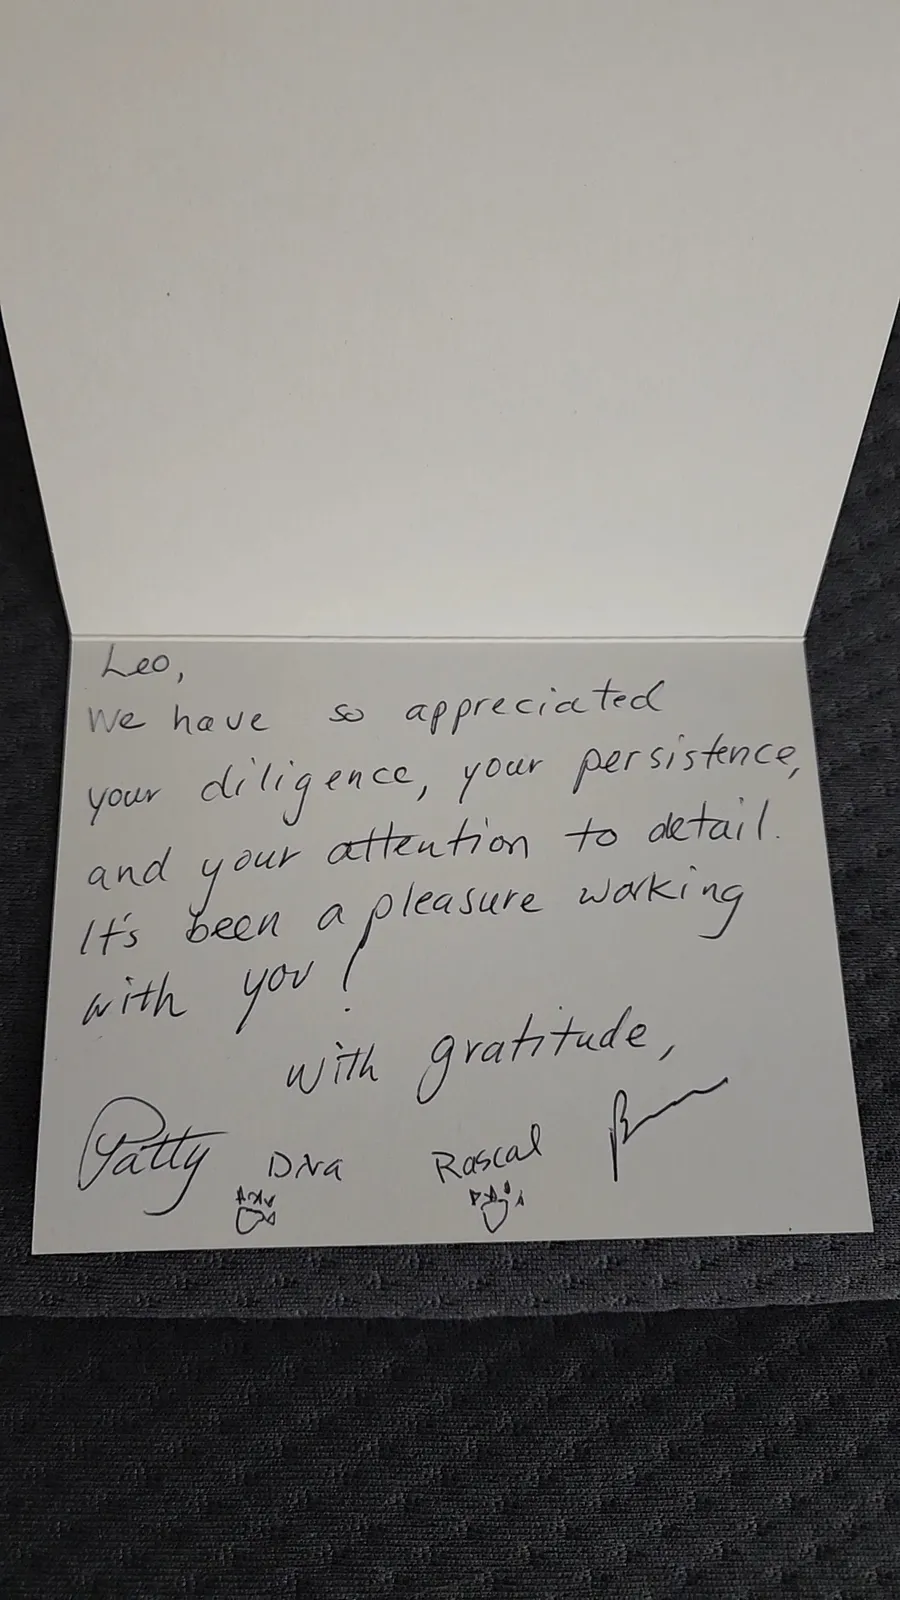 Leo,
We have so appreciated
your diligence, your persistence,
and your attention to detail.
It's been a pleasure working
with you!
with gratitude,
Patty Diva Rascal